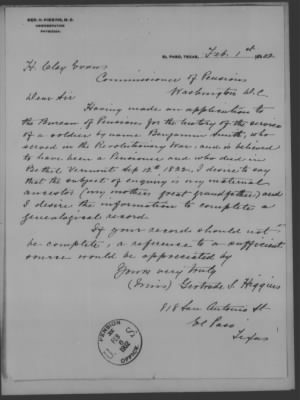 GEO. H. HIGGINS, M. D.
HOMEOPATHIC
PHYSICIAN.
EL PASO, TEXAS, Feb. 1st 1902.
H. Clay Evans
Commissioner of Pensions
Washington D.C.
Dear Sir
Having made an application to
the Bureau of Pensions for the history of the service
of a soldier by name Benjamin Smith, who
served in the Revolutionary War, and is believed
to have been a Pensioner and who died in
Bethel Vermont Sep 12th I desire to say
that the subject of enquiry is my maternal
ancestor (my mothers great grandfather) and
I desire the information to complete a
genealogical record.
If your records should not
be complete, a reference to a sufficient
source would be appreciated by
Yours very truly
(Miss) Gertrude S. Higgins
818 San Antonio St
El Paso
Texas
PENSION
FEB
6
1902
OFFICE
U S